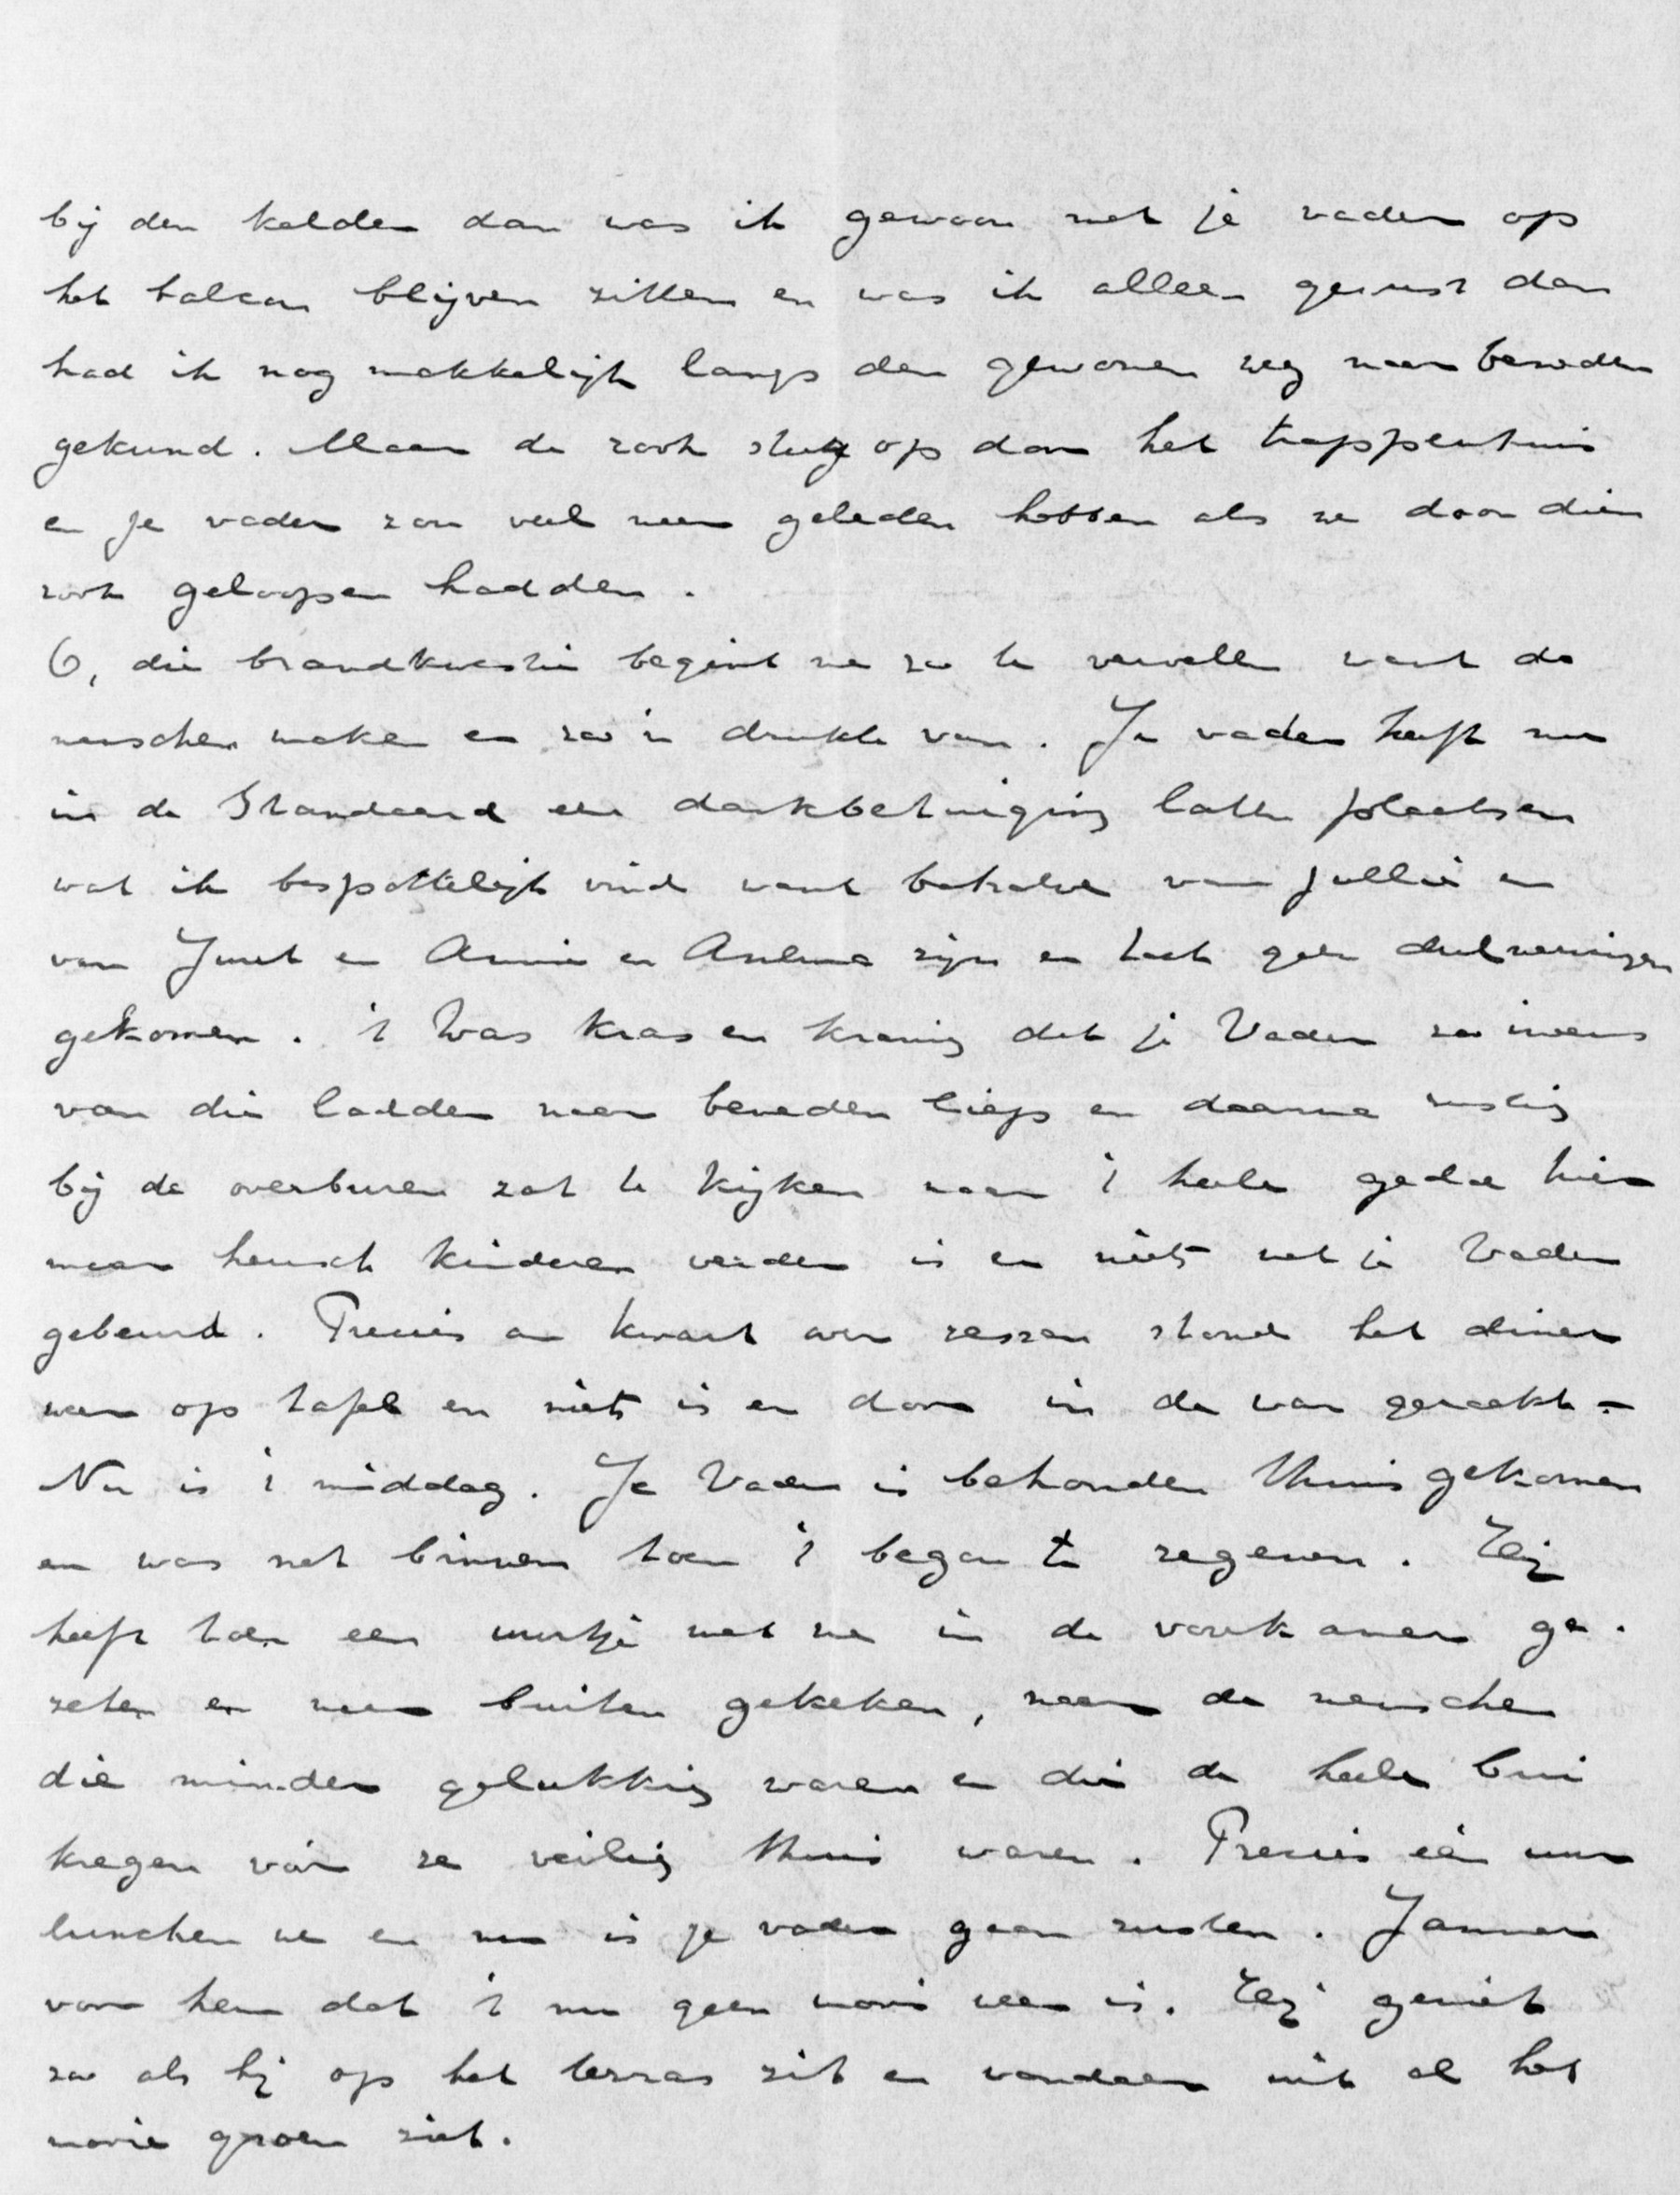 bij den kelder dan was ik gewoon met je vader op
het balcon blijven zitten en was ik alleen geweest dan
had ik nog makkelijk langs den gewonen weg naar beneden
gekund. Maar de rook sloeg op door het trappenhuis
en je vader zou veel meer geleden hebben als we door dien
rook geloopen hadden.
O, die brandkwestie begint me zoo te vervelen want de
menschen maken er zoo'n drukte van. Je vader heeft nu
in de Standaard een dankbetuiging laten plaatsen
wat ik bespottelijk vind want behalve van jullie en
van Juut en Annie en zijn er haast geen deelnemingen
gekomen. 't Was kras en kranig dat je Vader zoo ineens
van die ladder naar beneden liep en daarna rustig
bij de overburen zat te kijken naar 't heele gedoe hier
maar heusch kinderen verder is er niets met je Vader
gebeurd. Precies om kwart over zessen stond het diner
weer op tafel en niets is er door in de war geraakt.-
Nu is 't middag. Je Vader is behouden thuis gekomen
en was net binnen toen 't began te regenen. Hij
heeft toen een uurtje met me in de voorkamer ge-
zeten en naar buiten gekeken, naar de menschen
die minder gelukkig waren en die de heele bui
kregen vóór ze veilig thuis waren. Precies één uur
lunchen we en nu is je vader gaan rusten. Jammer
voor hem dat 't nu geen mooi weer is. Hij geniet
zoo als hij op het terras zit en vandaar uit al het
mooie groen ziet.